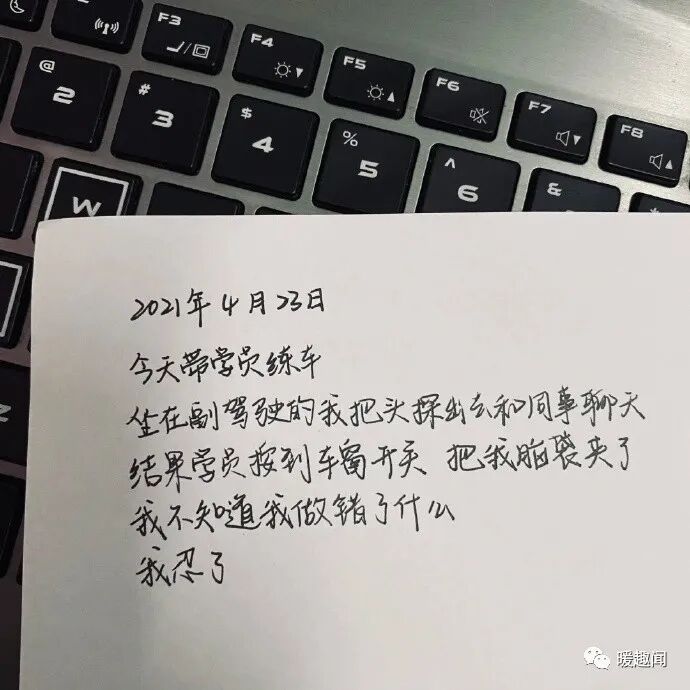 F3
F4
F5
F6
F7
F8
@
2
#
3
$
4
%
5
^
6
&
W
Z
2021年4月23日
今天带学员练车
坐在副驾驶的我把头探出去和同事聊天
结果学员按到车窗开关 把我脑袋夹了
我不知道我做错了什么
我忍了
暖趣闻